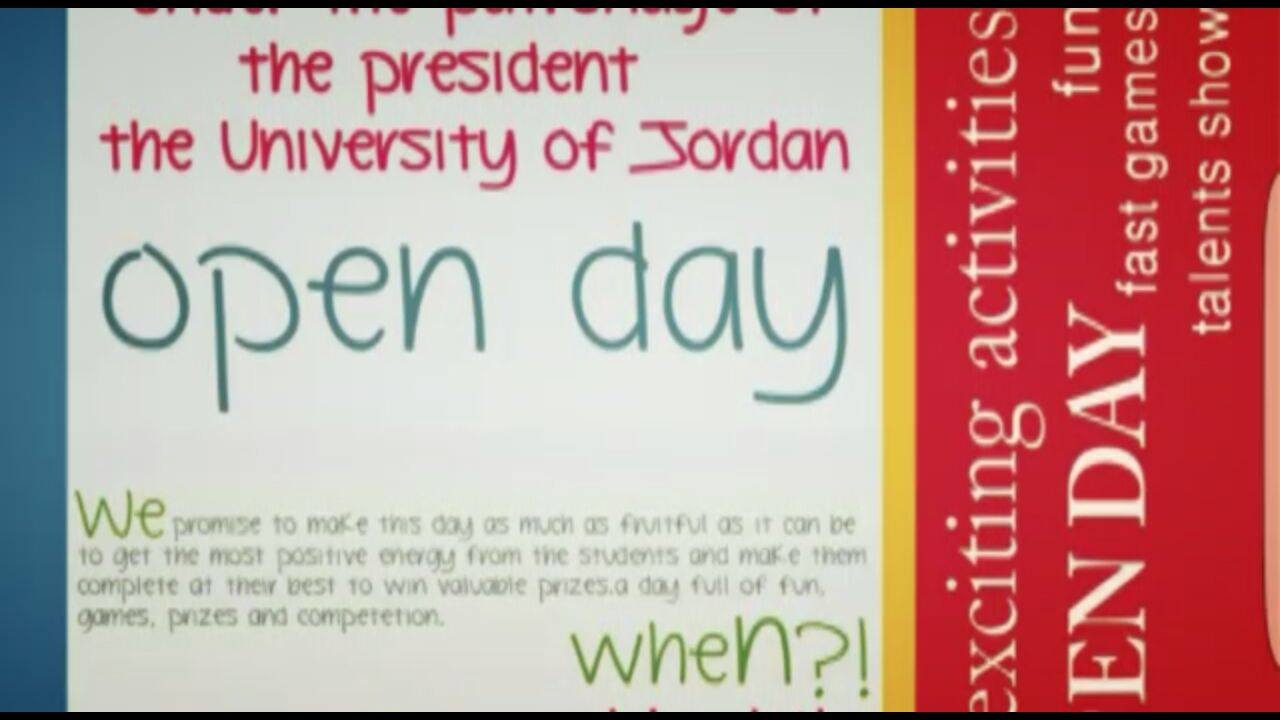 under the patronage of
the president
the University of Jordan
open day
We promise to make this day as much as fruitful as it can be
to get the most positive energy from the students and make them
complete at their best to win valuable prizes.a day full of fun,
games, prizes and competetion.
when?!
exciting activities
fun
EN DAY
fast games
talents show